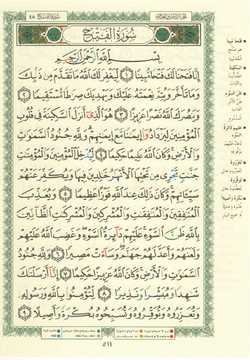 سُورَةُ الْفَتْحِ
بِسْمِ اللَّهِ الرَّحْمَٰنِ الرَّحِيمِ
إِنَّا فَتَحْنَا لَكَ فَتْحًا مُّبِينًا ١ لِّيَغْفِرَ لَكَ اللَّهُ مَا تَقَدَّمَ مِن ذَنبِكَ
وَمَا تَأَخَّرَ وَيُتِمَّ نِعْمَتَهُ عَلَيْكَ وَيَهْدِيَكَ صِرَاطًا مُّسْتَقِيمًا ٢
وَيَنصُرَكَ اللَّهُ نَصْرًا عَزِيزًا ٣ هُوَ الَّذِي أَنزَلَ السَّكِينَةَ فِي قُلُوبِ
الْمُؤْمِنِينَ لِيَزْدَادُوا إِيمَانًا مَّعَ إِيمَانِهِمْ وَلِلَّهِ جُنُودُ السَّمَاوَاتِ
وَالْأَرْضِ وَكَانَ اللَّهُ عَلِيمًا حَكِيمًا ٤ لِّيُدْخِلَ الْمُؤْمِنِينَ وَالْمُؤْمِنَاتِ
جَنَّاتٍ تَجْرِي مِن تَحْتِهَا الْأَنْهَارُ خَالِدِينَ فِيهَا وَيُكَفِّرَ عَنْهُمْ
سَيِّئَاتِهِمْ وَكَانَ ذَٰلِكَ عِندَ اللَّهِ فَوْزًا عَظِيمًا ٥ وَيُعَذِّبَ
الْمُنَافِقِينَ وَالْمُنَافِقَاتِ وَالْمُشْرِكِينَ وَالْمُشْرِكَاتِ الظَّانِّينَ
بِاللَّهِ ظَنَّ السَّوْءِ عَلَيْهِمْ دَائِرَةُ السَّوْءِ وَغَضِبَ اللَّهُ عَلَيْهِمْ
وَلَعَنَهُمْ وَأَعَدَّ لَهُمْ جَهَنَّمَ وَسَاءَتْ مَصِيرًا ٦ وَلِلَّهِ جُنُودُ
السَّمَاوَاتِ وَالْأَرْضِ وَكَانَ اللَّهُ عَزِيزًا حَكِيمًا ٧ إِنَّا أَرْسَلْنَاكَ
شَاهِدًا وَمُبَشِّرًا وَنَذِيرًا ٨ لِّتُؤْمِنُوا بِاللَّهِ وَرَسُولِهِ
وَتُعَزِّرُوهُ وَتُوَقِّرُوهُ وَتُسَبِّحُوهُ بُكْرَةً وَأَصِيلًا ٩
٥١١